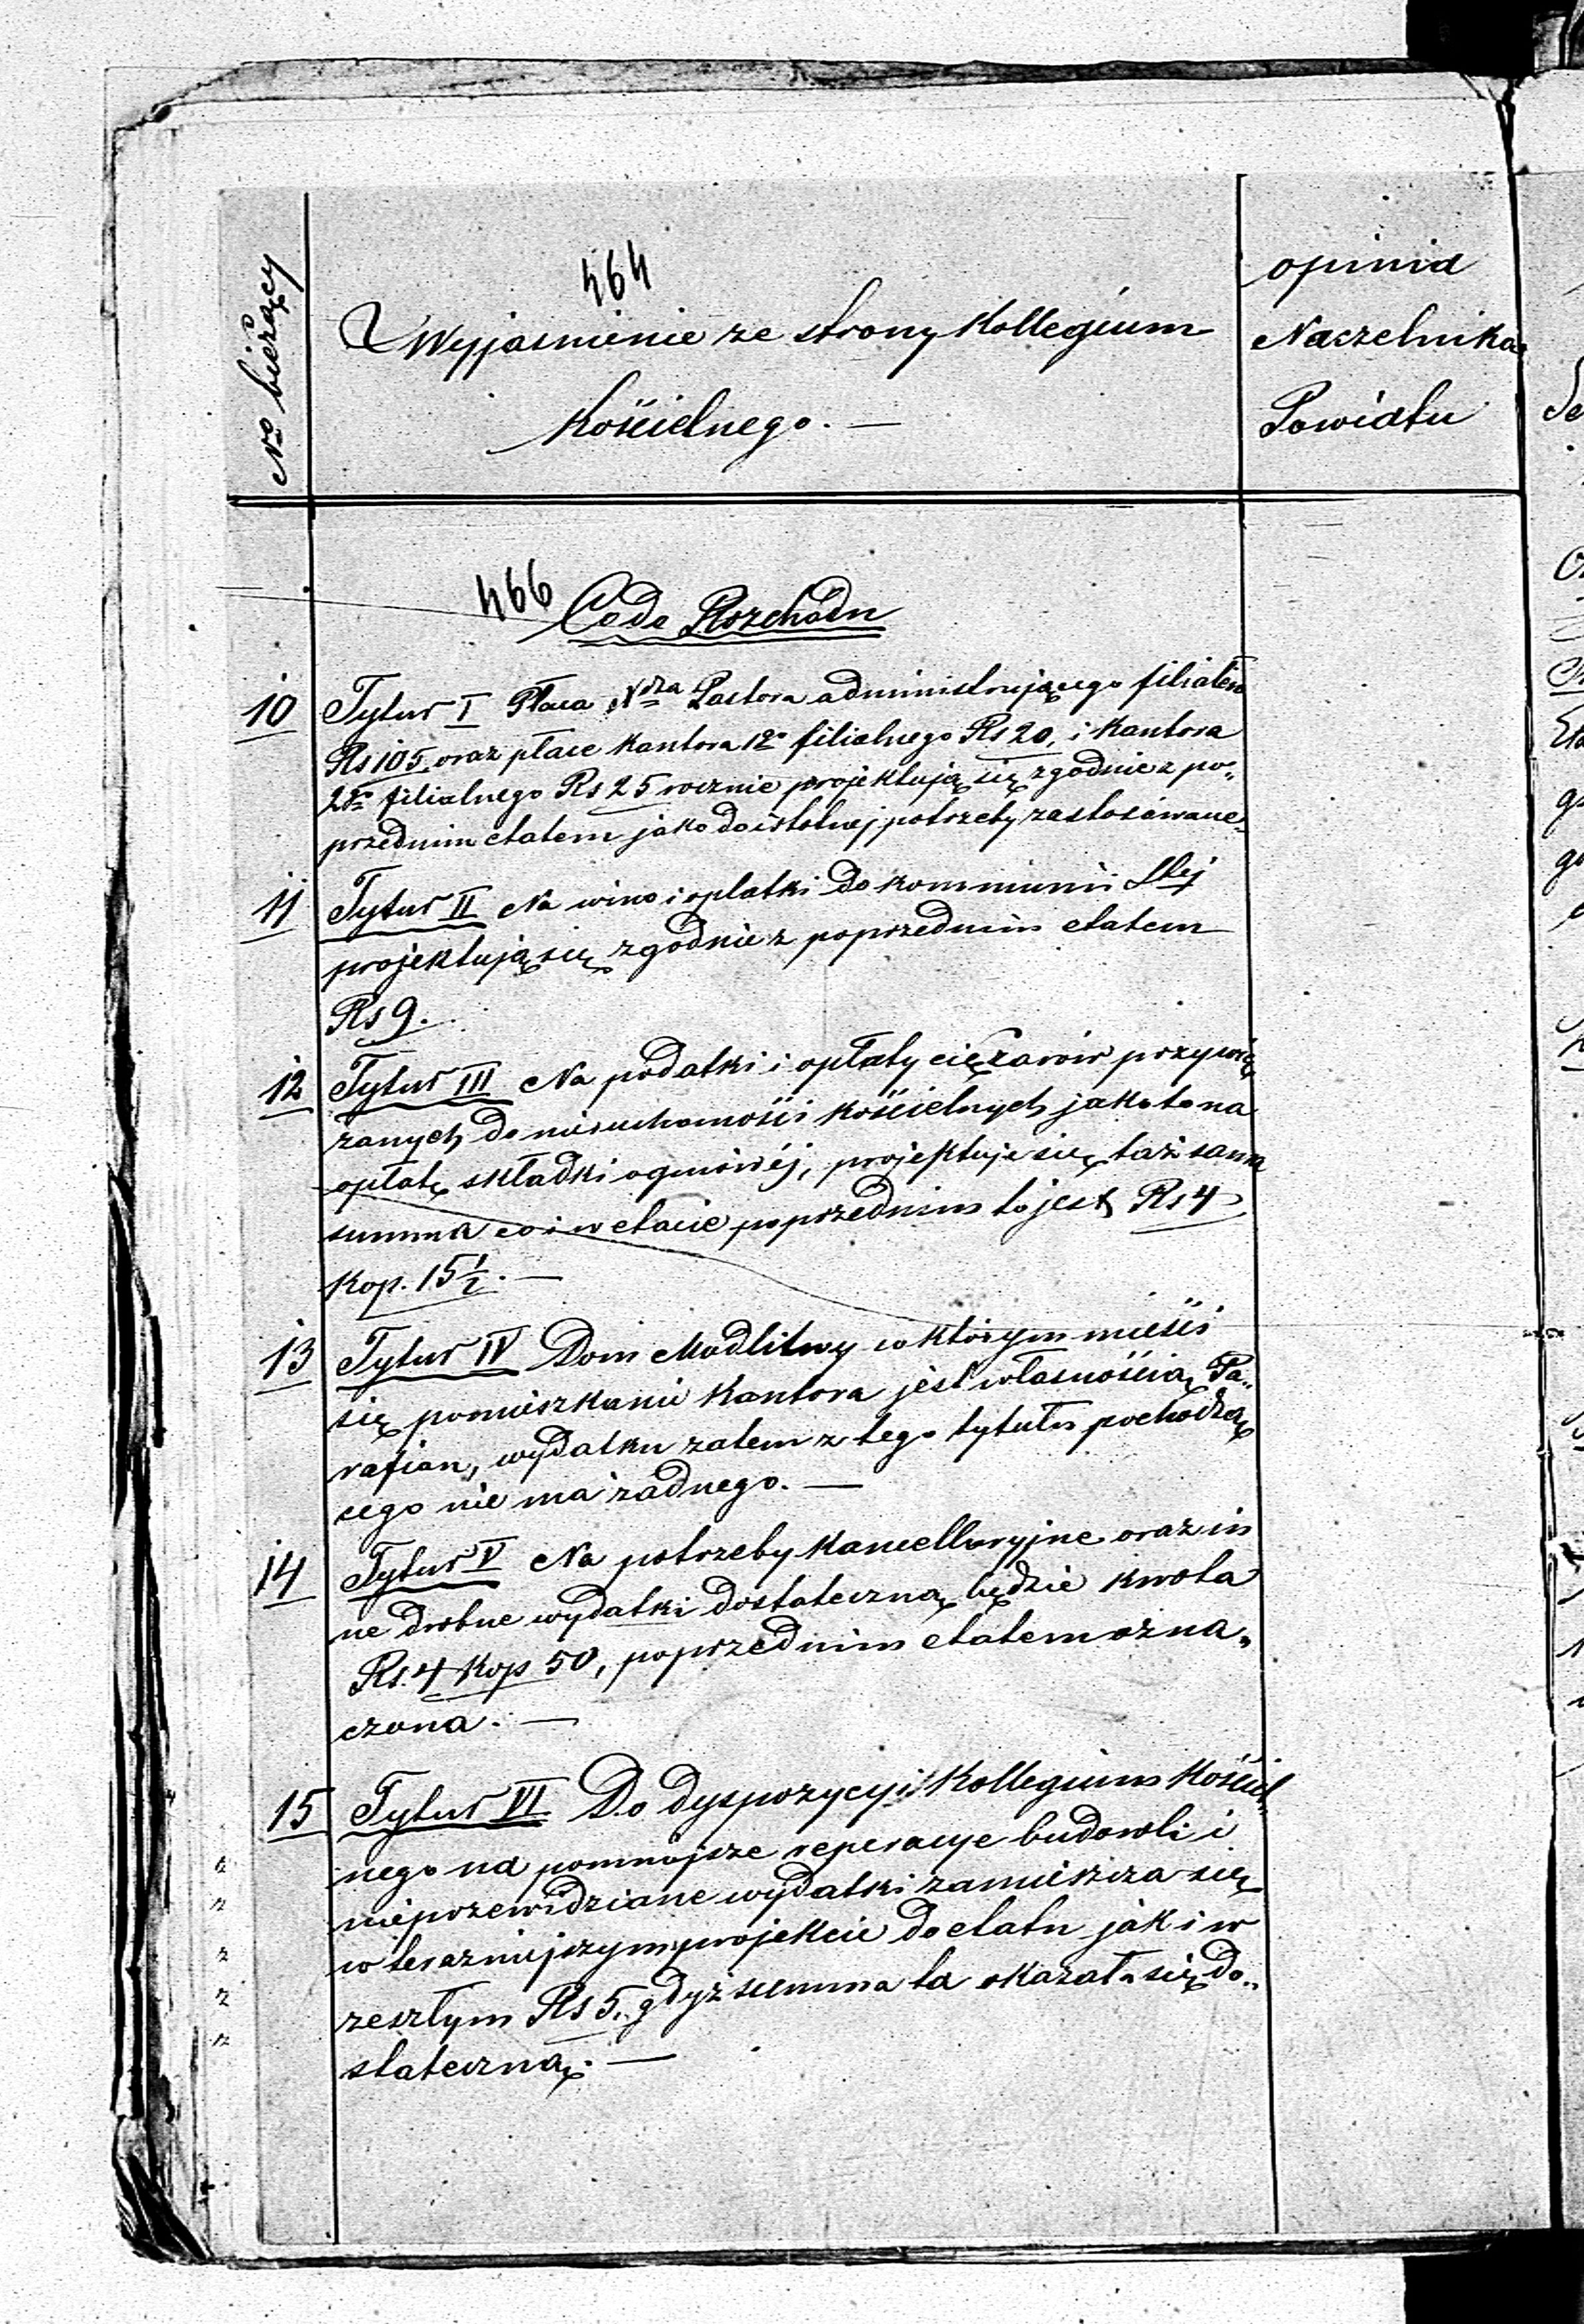 464
No bieżący
Wyjaśnienie ze strony Kollegium
Kościelnego. —
opinia
Naczelnika
Powiatu
466
Co do Rozchodu
10 Tytuł I Płaca Pastora administrującego filiałem
Rs 105, oraz płace Kantora 1go filialnego Rs 20, i Kantora
2go filialnego Rs 25 rocznie projektują się zgodnie z po„
przednim etatem jako do istotnej potrzeby zastosowane.
11 Tytuł II Na wino i opłatki do kommunii Stej
projektują się zgodnie z poprzednim etatem
Rs 9.
12 Tytuł III Na podatki i opłaty ciężarów przywią
zanych do nieruchomości kościelnych jako to na
opłatę składki ogniowéj, projektuje się taż sama
summa co i w etacie poprzednim to jest Rs 4
Kop. 15 1/2. —
13 Tytuł IV Dom Modlitwy w którym mieści
się pomieszkanie Kantora jest własnością Pa„
rafian, wydatku zatem z tego tytułu pochodzą
cego nie ma żadnego. —
14 Tytuł V Na potrzeby Kancellaryjne oraz in
ne drobne wydatki dostateczną będzie kwota
Rs. 4 Kop 50, poprzednim etatem ozna„
czona. —
15 Tytuł VI Do dyspozycyi Kollegium Kościel„
nego na pomniejsze reperacye budowli i
nieprzewidziane wydatki zamieszcza się
w teraźniejszym projekcie do etatu jak i w
zeszłym Rs 5, gdyż summa ta okazała się do„
stateczną. —